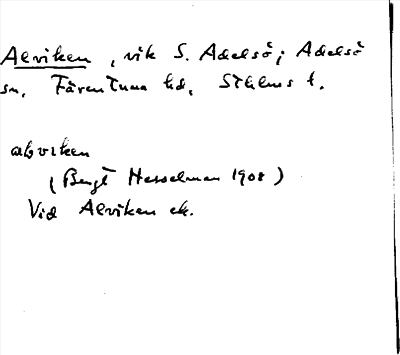 Alviken, vik S. Adelsö; Adelsö
sn, Färentuna hd, Sthlms l.
alvıken
(Bengt Hesselman 1908)
Vid Alviken ek.